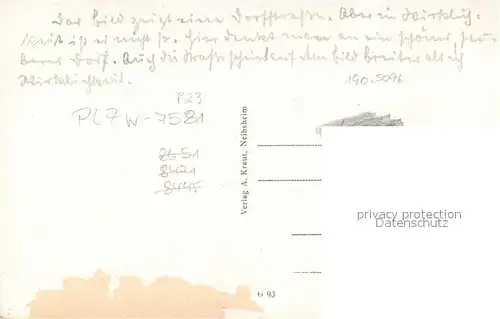 Das Bild zeigt eine Dorfstraße. Aber in Wirklich-
keit ist es nicht so. Hier denkt man an ein schönes, sau-
beres Dorf. Auch die Straße scheint auf dem Bild breiter als in
Wirklichkeit.
190-5096
P23
PLZ W-7521
8651
8421
8445
Verlag A. Kraut, Neibsheim
privacy protection
Datenschutz
G 93